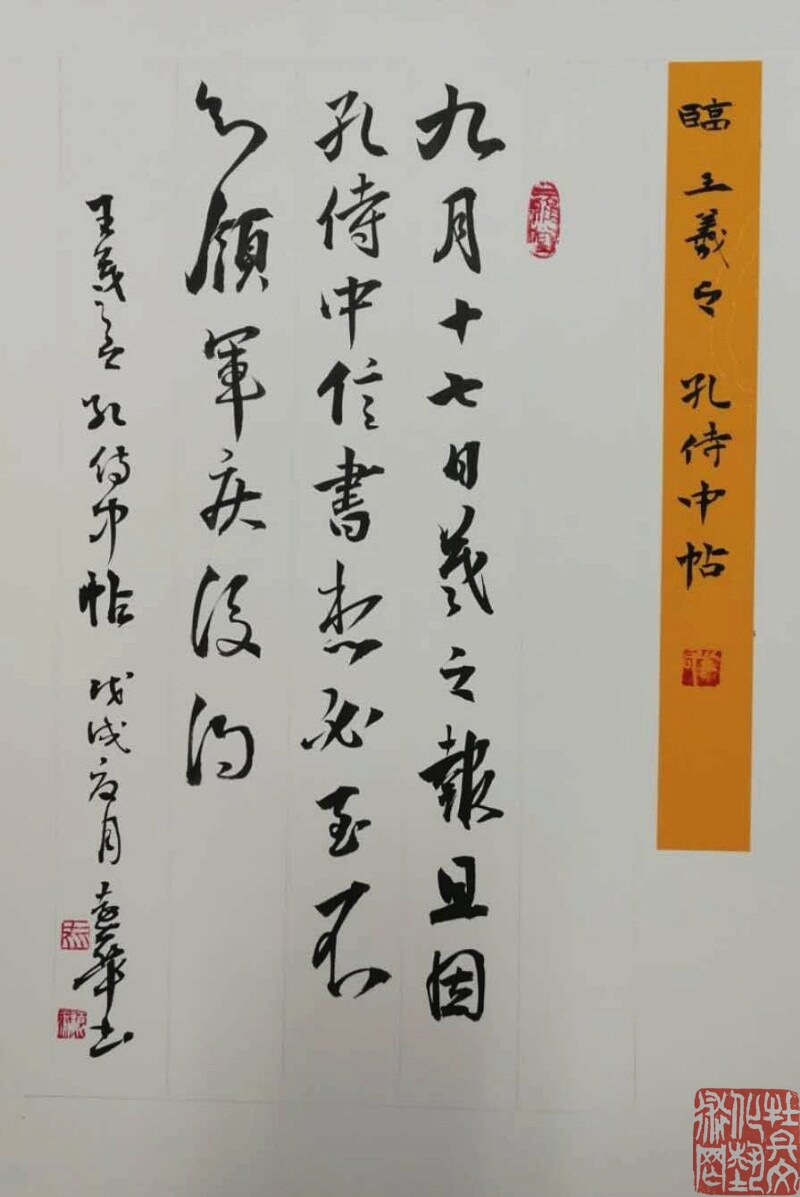 臨王羲之孔侍中帖
九月十七日羲之報且因
孔侍中信書想必至不
知領軍疾後問
王羲之孔侍中帖 戊戌夏月 華书